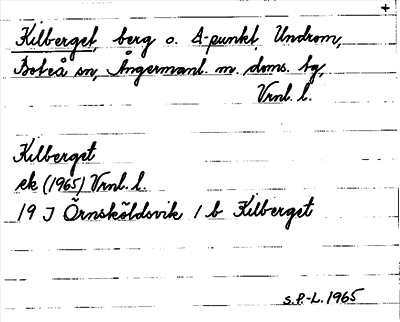 +
Kilberget, berg o. A-punkt, Undrom,
Boteå sn, Ångermanl. m. doms. tg,
Vrnl. l.
Kilberget
ek (1965) Vrnl. l.
19 J Örnsköldsvik 1 b Kilberget
S.P.-L. 1965